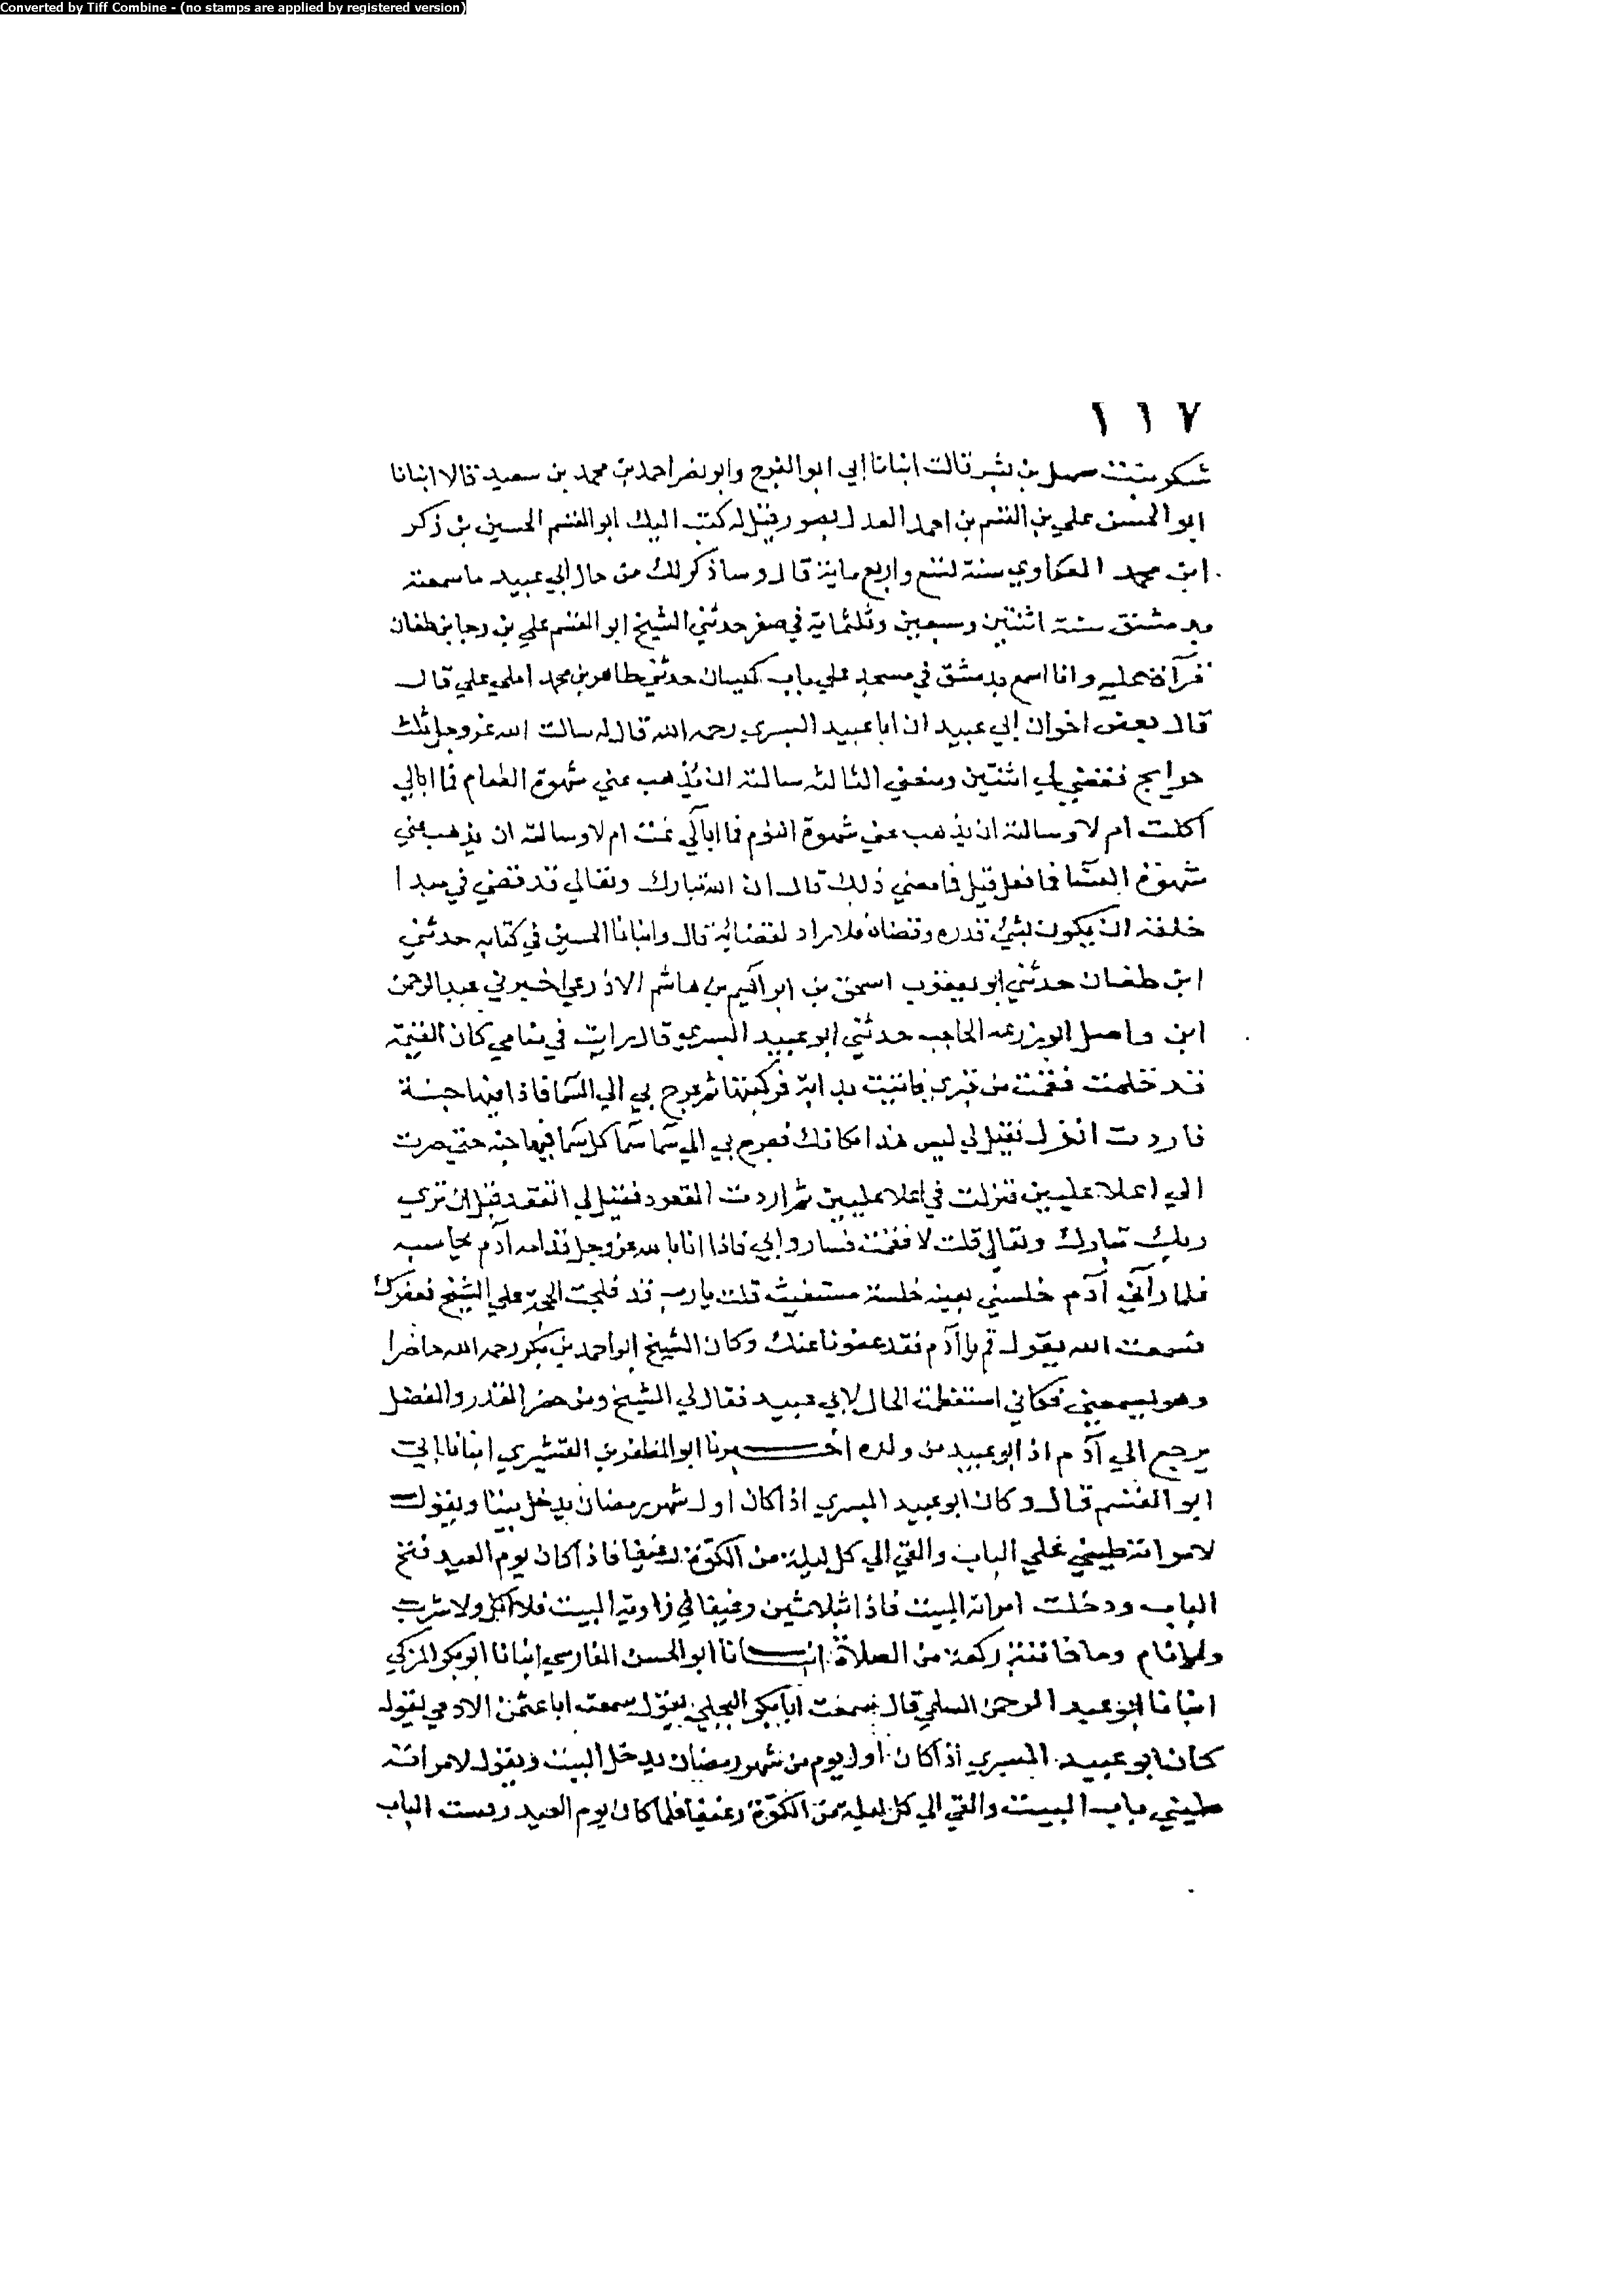 Converted by Tiff Combine - (no stamps are applied by registered version)
١١٧
شكر بنت سهل بن بشر قالت انبانا ابي ابو الفرج وابو نصر احمد بن محمد بن سعيد قالا انبانا
ابو الحسن علي بن القسم بن احمد العدل بصور قيل له كتب اليك ابو القسم الحسين بن ذكر
ابن محمد العكاوي سنة تسع واربع ماية قال وساذكر لك من حال ابي عبيد ما سمعته
بدمشق سنة اثنتين وسبعين وثلثماية في صفر حدثني الشيخ ابو القسم علي بن رجا بن طغان
قرآة عليه وانا اسمع بدمشق في مسجد علي باب كيسان حدثني طاهر بن محمد املي علي قال
قال بعض اخوان ابي عبيد ان ابا عبيد البسري رحمه الله قال له سالت الله عز وجل ثلث
حوايج فقضي لي اثنتين ومنعني الثالثه سالته ان يذهب عني شهوة الطعام فما ابالي
اكلت ام لا وسالته ان يذهب عني شهوة النوم فما ابالي نمت ام لا وسالته ان يذهب عني
شهوة النسا فما فعل قيل فما معني ذلك قال ان الله تبارك وتعالي قد قضي في مبدا
خلقه ان يكون لشئ قدره وقضاه فلا راد لقضائه قال وانبانا الحسين في كتابه حدثني
ابن طغان حدثني ابو يعقوب اسحق بن ابراهيم بن هاشم الاذرعي اخبرني عبد الرحمن
ابن واصل ابو زرعه الحاجب حدثني ابو عبيد البسري قال رايت في منامي كان القيمة
قد قامت فقمت من قبري فاتيت بدابة فركبتها ثم عرج بي الي السما فاذا فيها جنة
فاردت انزل فقيل لي ليس هذا مكانك فعرج بي الي سما سما كل سما فيها جنه حتى صرت
الي اعلا عليين فنزلت في اعلا عليين ثم اردت القعود فقيل لي اتقعد قبل ان تري
ربك تبارك وتعالي قلت لا فقمت فساروا بي فاذا انا بالله عز وجل قدامه آدم يحاسبه
فلما رآني آدم خلسني بعينه خلسة مستغيث قلت يا رب قد فلجت الحجة علي الشيخ فعفوك
فسمعت الله يقول قم يا آدم فقد عفونا عنك وكان الشيخ ابو احمد بن بكر رحمه الله حاضرا
وهو يسمعني فكاني استفظعت الحال لابي عبيد فقال لي الشيخ ومن حضر القدر والفضل
يرجع الي آدم اذ ابو عبيد من ولده اخبرنا ابو المظفر بن القشيري انبانا ابي
ابو القسم قال وكان ابو عبيد البسري اذا كان اول شهر رمضان يدخل بيتا ويقول
لامراته طيني علي الباب والقي الي كل ليلة من الكوة رغيفا فاذا كان يوم العيد فتح
الباب ودخلت امراته البيت فاذا بثلاثين رغيفا في زاوية البيت فلا اكل ولا شرب
ولا نام وما فاتته ركعة من الصلاة انبانا ابو الحسن الفارسي انبانا ابو بكر المزكي
انبانا ابو عبد الرحمن السلمي قال سمعت ابا بكر البجلي يقول سمعت ابا عثمن الادمي يقول
كان ابو عبيد البسري اذا كان اول يوم من شهر رمضان يدخل البيت ويقول لامراته
طيني باب البيت والقي الي كل ليلة من الكوة رغيفا فلما كان يوم العيد رفست الباب